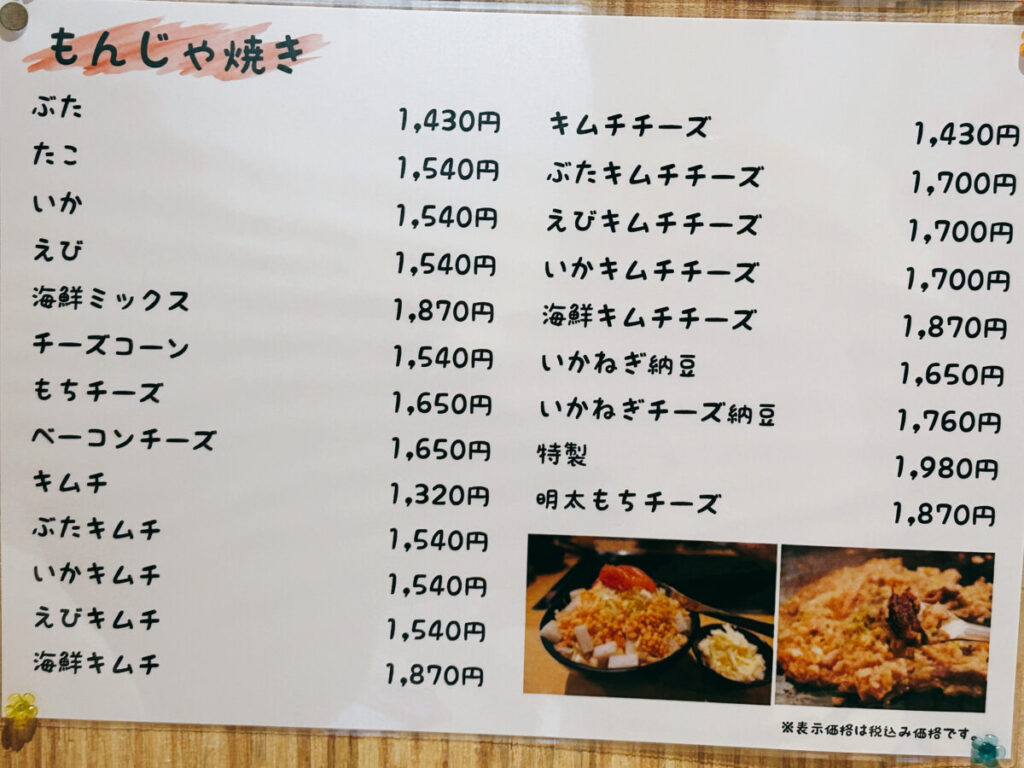 もんじゃ焼き
ぶた 1,430円
たこ 1,540円
いか 1,540円
えび 1,540円
海鮮ミックス 1,870円
チーズコーン 1,540円
もちチーズ 1,650円
ベーコンチーズ 1,650円
キムチ 1,320円
ぶたキムチ 1,540円
いかキムチ 1,540円
えびキムチ 1,540円
海鮮キムチ 1,870円
キムチチーズ 1,430円
ぶたキムチチーズ 1,700円
えびキムチチーズ 1,700円
いかキムチチーズ 1,700円
海鮮キムチチーズ 1,870円
いかねぎ納豆 1,650円
いかねぎチーズ納豆 1,760円
特製 1,980円
明太もちチーズ 1,870円
※表示価格は税込み価格です。